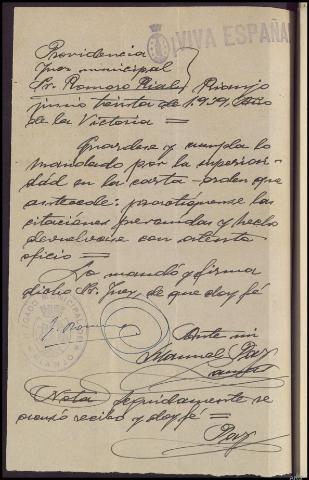 ¡VIVA ESPAÑA!
Providencia
Juez municipal
Sr. Romero Rial Rianjo
junio treinta de 1939, Año
de la Victoria =
Guardese y cumpla lo
mandado por la superiori-
dad en la carta-orden que
antecede: practiquense las
citaciones prevenidas y hecho
devuelvase con atento
oficio =
Lo mandó y firma
dicho Sr. Juez, de que doy fé
JUZGADO MUNICIPAL
Ante mi
Manuel Paz
Nota Seguidamente se
acusó recibo y doy fé =
Paz